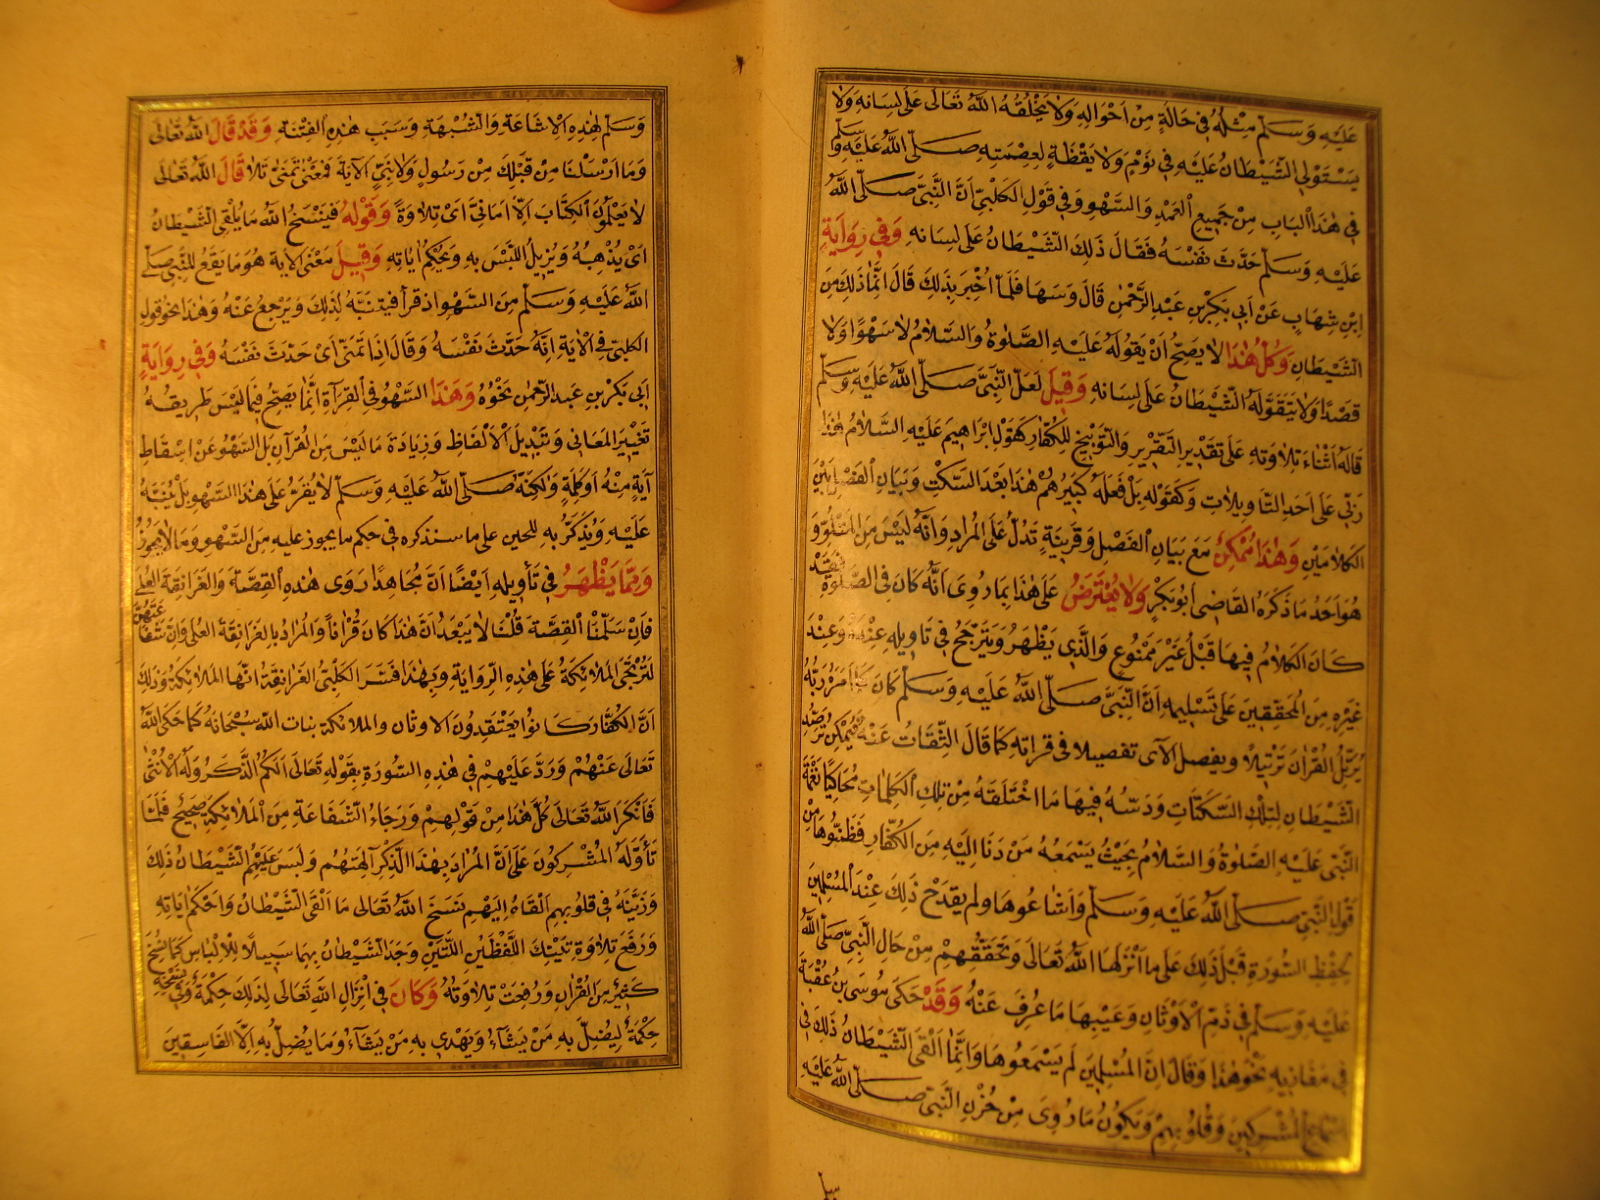 عَلَيْهِ وَسَلَّمَ مِثْلُهُ فِي حَالَةٍ مِنْ اَحْوَالِهِ وَلَا يَخْلُقُهُ اللّٰهُ تَعَالَى عَلَى لِسَانِهِ وَلَا
يَسْتَوْلِي الشَّيْطَانُ عَلَيْهِ فِي نَوْمٍ وَلَا يَقْظَةٍ لِعِصْمَتِهِ صَلَّى اللّٰهُ عَلَيْهِ وَسَلَّمَ
فِي هٰذَا الْبَابِ مِنْ جَمِيعِ الْعَمْدِ وَالسَّهْوِ وَفِي قَوْلِ الْكَلْبِيِّ اَنَّ النَّبِيَّ صَلَّى اللّٰهُ
عَلَيْهِ وَسَلَّمَ حَدَّثَ نَفْسَهُ فَقَالَ ذٰلِكَ الشَّيْطَانُ عَلَى لِسَانِهِ وَفِي رِوَايَةِ
ابْنِ شِهَابٍ عَنْ اَبِي بَكْرِ بْنِ عَبْدِ الرَّحْمٰنِ قَالَ وَسَهَا فَلَمَّا اُخْبِرَ بِذٰلِكَ قَالَ اِنَّمَا ذٰلِكَ مِنَ
الشَّيْطَانِ وَكُلُّ هٰذَا لَا يَصِحُّ اَنْ يَقُولَهُ عَلَيْهِ الصَّلٰوةُ وَالسَّلَامُ لَا سَهْوًا وَلَا
قَصْدًا وَلَا يَتَقَوَّلَهُ الشَّيْطَانُ عَلَى لِسَانِهِ وَقِيلَ لَعَلَّ النَّبِيَّ صَلَّى اللّٰهُ عَلَيْهِ وَسَلَّمَ
قَالَهُ اَثْنَاءَ تِلَاوَتِهِ عَلَى تَقْدِيرِ التَّقْرِيرِ وَالتَّوْبِيخِ لِلْكُفَّارِ كَقَوْلِ اِبْرَاهِيمَ عَلَيْهِ السَّلَامُ هٰذَا
رَبِّي عَلَى اَحَدِ التَّأْوِيلَاتِ وَكَقَوْلِهِ بَلْ فَعَلَهُ كَبِيرُهُمْ هٰذَا بَعْدَ السَّكْتِ وَبَيَانِ الْفَصْلِ بَيْنَ
الْكَلَامَيْنِ وَهٰذَا مُمْكِنٌ مَعَ بَيَانِ الْفَصْلِ وَقَرِينَةٍ تَدُلُّ عَلَى الْمُرَادِ وَاَنَّهُ لَيْسَ مِنَ الْمَتْلُوِّ وَ
هُوَ اَحَدُ مَا ذَكَرَهُ الْقَاضِي اَبُو بَكْرٍ وَلَا يُعْتَرَضُ عَلَى هٰذَا بِمَا رُوِيَ اَنَّهُ كَانَ فِي الصَّلٰوةِ فَقَدْ
كَانَ الْكَلَامُ فِيهَا قَبْلُ غَيْرَ مَمْنُوعٍ وَالَّذِي يَظْهَرُ وَيَتَرَجَّحُ فِي تَأْوِيلِهِ عِنْدَهُ وَعِنْدَ
غَيْرِهِ مِنَ الْمُحَقِّقِينَ عَلَى تَسْلِيمِهِ اَنَّ النَّبِيَّ صَلَّى اللّٰهُ عَلَيْهِ وَسَلَّمَ كَانَ كَمَا اَمَرَهُ رَبُّهُ
يُرَتِّلُ الْقُرْاٰنَ تَرْتِيلًا وَيُفَصِّلُ الْآيَ تَفْصِيلًا فِي قِرَاءَتِهِ كَمَا قَالَ الثِّقَاتُ عَنْهُ فَيُمْكِنُ تَرَصُّدُ
الشَّيْطَانِ لِتِلْكَ السَّكَتَاتِ وَدَسُّهُ فِيهَا مَا اخْتَلَقَهُ مِنْ تِلْكَ الْكَلِمَاتِ مُحَاكِيًا نَغْمَةَ
النَّبِيِّ عَلَيْهِ الصَّلٰوةُ وَالسَّلَامُ بِحَيْثُ يَسْمَعُهُ مَنْ دَنَا اِلَيْهِ مِنَ الْكُفَّارِ فَظَنُّوهَا مِنْ
قَوْلِ النَّبِيِّ صَلَّى اللّٰهُ عَلَيْهِ وَسَلَّمَ وَاَشَاعُوهَا وَلَمْ يَقْدَحْ ذٰلِكَ عِنْدَ الْمُسْلِمِينَ
لِحِفْظِ السُّورَةِ قَبْلَ ذٰلِكَ عَلَى مَا اَنْزَلَهَا اللّٰهُ تَعَالَى وَتَحَقُّقِهِمْ مِنْ حَالِ النَّبِيِّ صَلَّى اللّٰهُ
عَلَيْهِ وَسَلَّمَ فِي ذَمِّ الْاَوْثَانِ وَعَيْبِهَا مَا عُرِفَ عَنْهُ وَقَدْ حَكَى مُوسَى بْنُ عُقْبَةَ
فِي مَغَازِيهِ نَحْوَ هٰذَا وَقَالَ اِنَّ الْمُسْلِمِينَ لَمْ يَسْمَعُوهَا وَاِنَّمَا اَلْقَى الشَّيْطَانُ ذٰلِكَ فِي
اَسْمَاعِ الْمُشْرِكِينَ وَقُلُوبِهِمْ وَيَكُونُ مَا رُوِيَ مِنْ حُزْنِ النَّبِيِّ صَلَّى اللّٰهُ عَلَيْهِ
وَسَلَّمَ لِهٰذِهِ الْاِشَاعَةِ وَالشُّبْهَةِ وَسَبَبِ هٰذِهِ الْفِتْنَةِ وَقَدْ قَالَ اللّٰهُ تَعَالَى
وَمَا اَرْسَلْنَا مِنْ قَبْلِكَ مِنْ رَسُولٍ وَلَا نَبِيٍّ الْآيَةَ فَمَعْنَى تَمَنّٰى تَلَا قَالَ اللّٰهُ تَعَالَى
لَا يَعْلَمُونَ الْكِتَابَ اِلَّا اَمَانِيَّ اَيْ تِلَاوَةً وَقَوْلُهُ فَيَنْسَخُ اللّٰهُ مَا يُلْقِي الشَّيْطَانُ
اَيْ يُذْهِبُهُ وَيُزِيلُ اللَّبْسَ بِهِ وَيُحْكِمُ اٰيَاتِهِ وَقِيلَ مَعْنَى الْاٰيَةِ هُوَ مَا يَقَعُ لِلنَّبِيِّ صَلَّى
اللّٰهُ عَلَيْهِ وَسَلَّمَ مِنَ السَّهْوِ اِذَ قَرَأَ فَيَتَنَبَّهُ لِذٰلِكَ وَيَرْجِعُ عَنْهُ وَهٰذَا نَحْوُ قَوْلِ
الْكَلْبِيِّ فِي الْاٰيَةِ اِنَّهُ حَدَّثَ نَفْسَهُ وَقَالَ اِذَا تَمَنّٰى اَيْ حَدَّثَ نَفْسَهُ وَفِي رِوَايَةِ
اَبِي بَكْرِ بْنِ عَبْدِ الرَّحْمٰنِ نَحْوُهُ وَهَذَا السَّهْوُ فِي الْقِرَآءَةِ اِنَّمَا يَصِحُّ فِيمَا لَيْسَ طَرِيقُهُ
تَغْيِيرَ الْمَعَانِي وَتَبْدِيلَ الْاَلْفَاظِ وَزِيَادَةَ مَا لَيْسَ مِنَ الْقُرْاٰنِ بَلِ السَّهْوُ عَنْ اِسْقَاطِ
اٰيَةٍ مِنْهُ اَوْ كَلِمَةٍ وَلٰكِنَّهُ صَلَّى اللّٰهُ عَلَيْهِ وَسَلَّمَ لَا يُقَرُّ عَلَى هٰذَا السَّهْوِ بَلْ يُنَبَّهُ
عَلَيْهِ وَيُذَكَّرُ بِهِ لِلْحِينِ عَلَى مَا سَنَذْكُرُهُ فِي حُكْمِ مَا يَجُوزُ عَلَيْهِ مِنَ السَّهْوِ وَمَا لَا يَجُوزُ
وَمِمَّا يَظْهَرُ فِي تَأْوِيلِهِ اَيْضًا اَنَّ مُجَاهِدًا رَوَى هٰذِهِ الْقِصَّةَ وَالْغَرَانِقَةَ الْعُلَى
فَاِنْ سَلَّمْنَا الْقِصَّةَ قُلْنَا لَا يَبْعُدُ اَنَّ هٰذَا كَانَ قُرْاٰنًا وَالْمُرَادُ بِالْغَرَانِقَةِ الْعُلَى وَاِنَّ شَفَاعَتَهُنَّ
لَتُرْتَجَى الْمَلَائِكَةُ عَلَى هٰذِهِ الرِّوَايَةِ وَبِهٰذَا فَسَّرَ الْكَلْبِيُّ الْغَرَانِقَةَ اَنَّهَا الْمَلَائِكَةُ وَذٰلِكَ
اَنَّ الْكُفَّارَ كَانُوا يَعْتَقِدُونَ الْاَوْثَانَ وَالْمَلَائِكَةَ بَنَاتِ اللّٰهِ سُبْحَانَهُ كَمَا حَكَى اللّٰهُ
تَعَالَى عَنْهُمْ وَرَدَّ عَلَيْهِمْ فِي هٰذِهِ السُّورَةِ بِقَوْلِهِ تَعَالَى اَلَكُمُ الذَّكَرُ وَلَهُ الْاُنْثٰى
فَاَنْكَرَ اللّٰهُ تَعَالَى كُلَّ هٰذَا مِنْ قَوْلِهِمْ وَرَجَاءُ الشَّفَاعَةِ مِنَ الْمَلَائِكَةِ صَحِيحٌ فَلَمَّا
تَأَوَّلَهُ الْمُشْرِكُونَ عَلَى اَنَّ الْمُرَادَ بِهٰذَا الذِّكْرِ اٰلِهَتُهُمْ وَلَبَسَ عَلَيْهِمُ الشَّيْطَانُ ذٰلِكَ
وَزَيَّنَهُ فِي قُلُوبِهِمْ وَاَلْقَاهُ اِلَيْهِمْ نَسَخَ اللّٰهُ تَعَالَى مَا اَلْقَى الشَّيْطَانُ وَاَحْكَمَ اٰيَاتِهِ
وَرَفَعَ تِلَاوَةَ تَيْنِكَ اللَّفْظَيْنِ اللَّتَيْنِ وَجَدَ الشَّيْطَانُ بِهِمَا سَبِيلًا لِلْاِلْبَاسِ كَمَا نُسِخَ
كَثِيرٌ مِنَ الْقُرْاٰنِ وَرُفِعَتْ تِلَاوَتُهُ وَكَانَ فِي اِنْزَالِ اللّٰهِ تَعَالَى لِذٰلِكَ حِكْمَةٌ وَفِي نَسْخِهِ
حِكْمَةٌ لِيُضِلَّ بِهِ مَنْ يَشَآءُ وَيَهْدِي بِهِ مَنْ يَشَآءُ وَمَا يُضِلُّ بِهِ اِلَّا الْفَاسِقِينَ